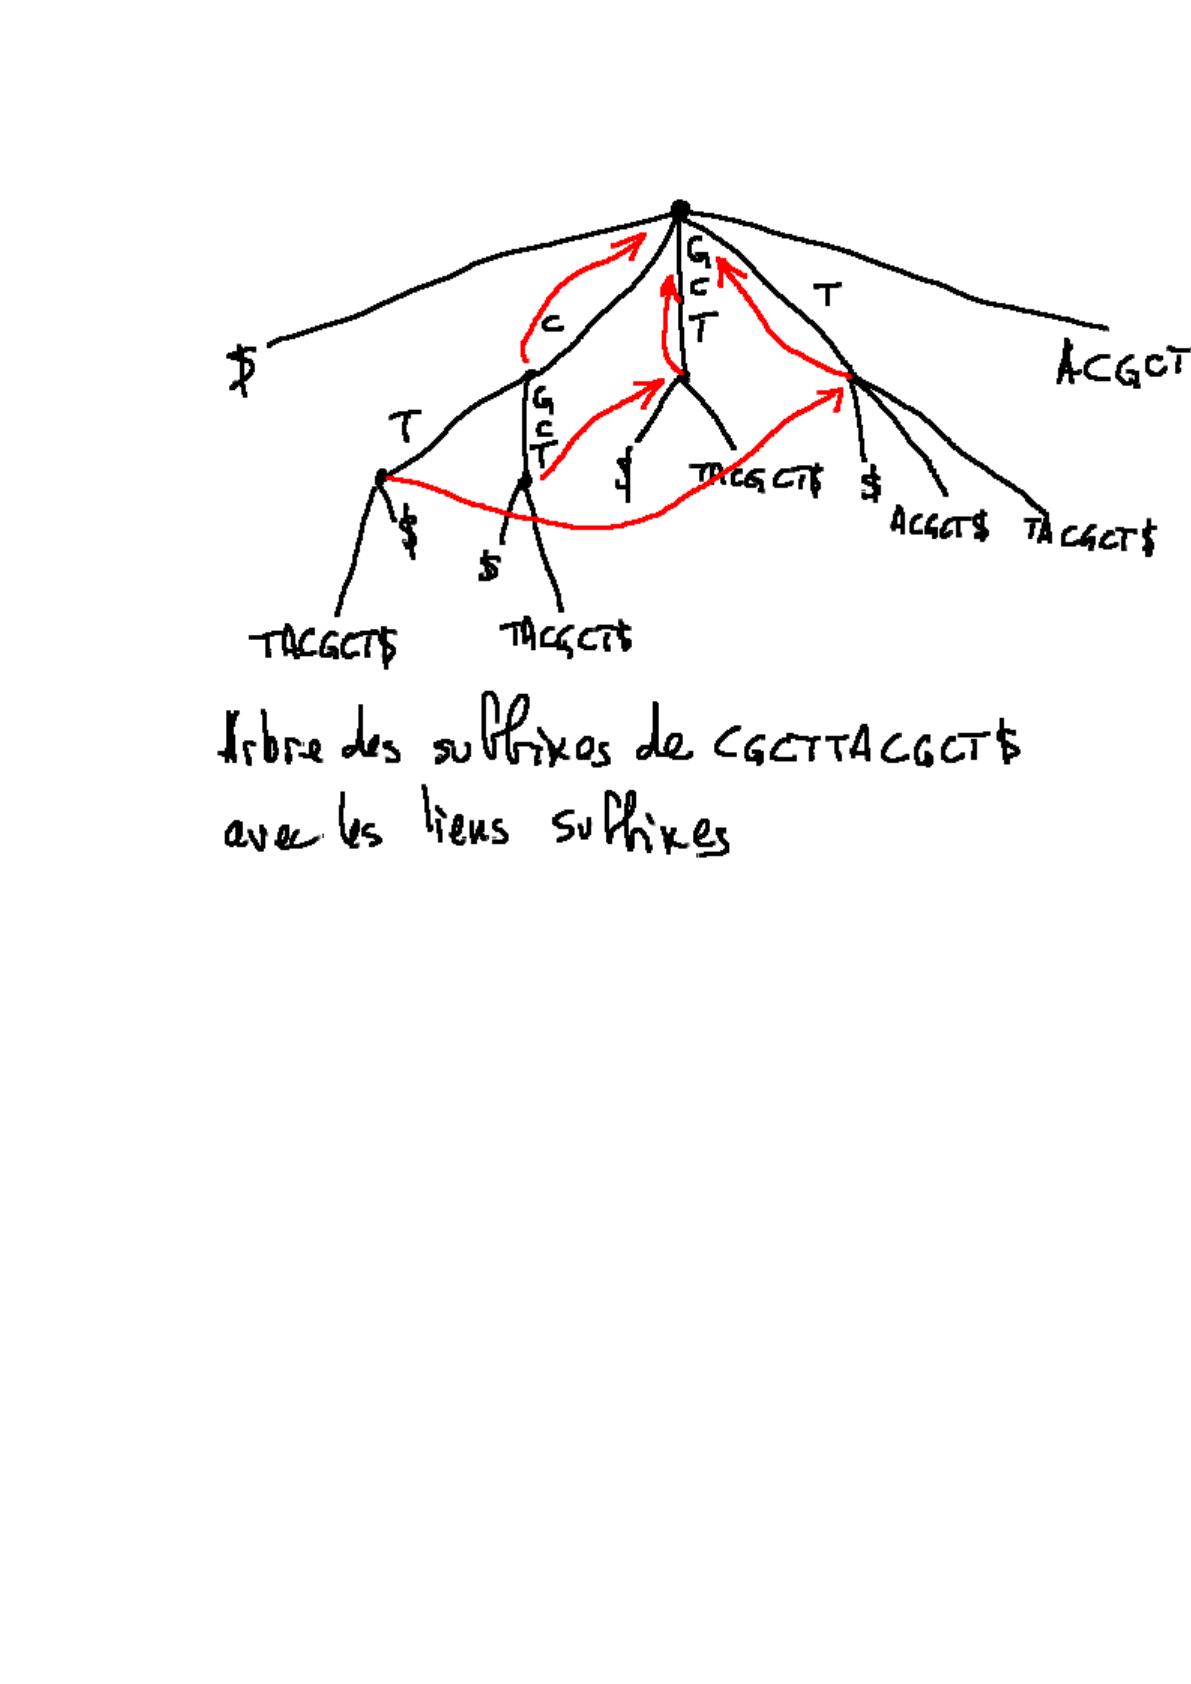 G
C
T
C
T
$
ACGCT
T
G
C
T
$
TACGCT$
$
ACGCT$
TACGCT$
$
$
TACGCT$
TACGCT$
Arbre des suffixes de CGCTTACGCT$
avec les liens suffixes